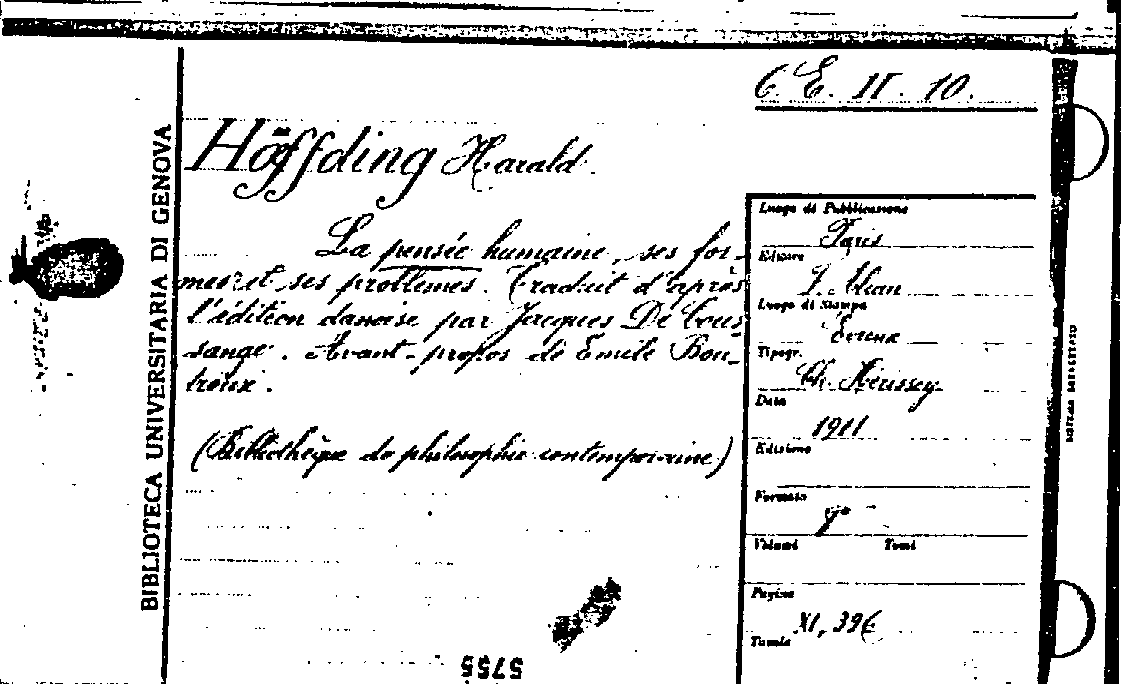 6. E. II. 10.
BIBLIOTECA UNIVERSITARIA DI GENOVA
Höffding Harald.
La pensée humaine, ses for-
mes et ses problèmes. Traduit d'après
l'édition danoise par Jacques De Cous-
sange. Avant-propos de Emile Bou-
troux.
(Bibliothèque de philosophie contemporaine)
Luogo di Pubblicazione
Paris
Editore
F. Alcan
Luogo di Stampa
Evreux
Tipogr.
Ch. Hérissey
Data
1911
Edizione
Formato
8°
Volumi Tomi
Pagine
XI, 396
Tavole
5755